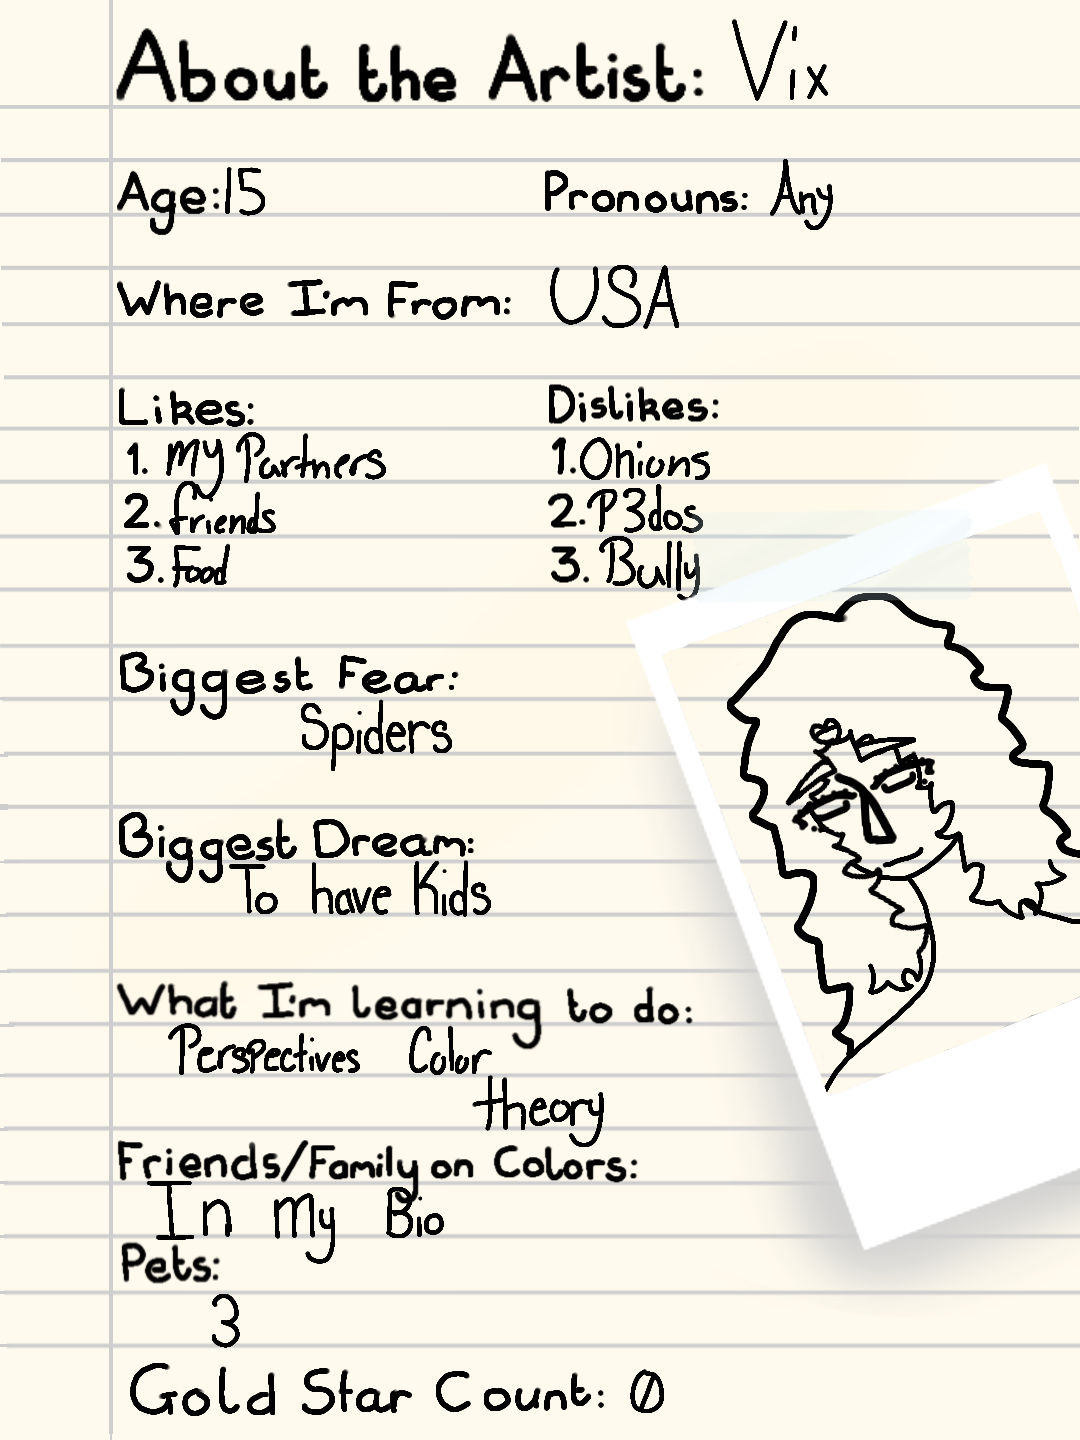 About the Artist: Vix
Age:15 Pronouns: Any
Where I'm From: USA
Likes: Dislikes:
1. My Partners 1.Onions
2. friends 2.P3dos
3. Food 3. Bully
Biggest Fear:
Spiders
Biggest Dream:
To have Kids
What I'm learning to do:
Perspectives Color
theory
Friends/Family on Colors:
In My Bio
Pets:
3
Gold Star Count: 0